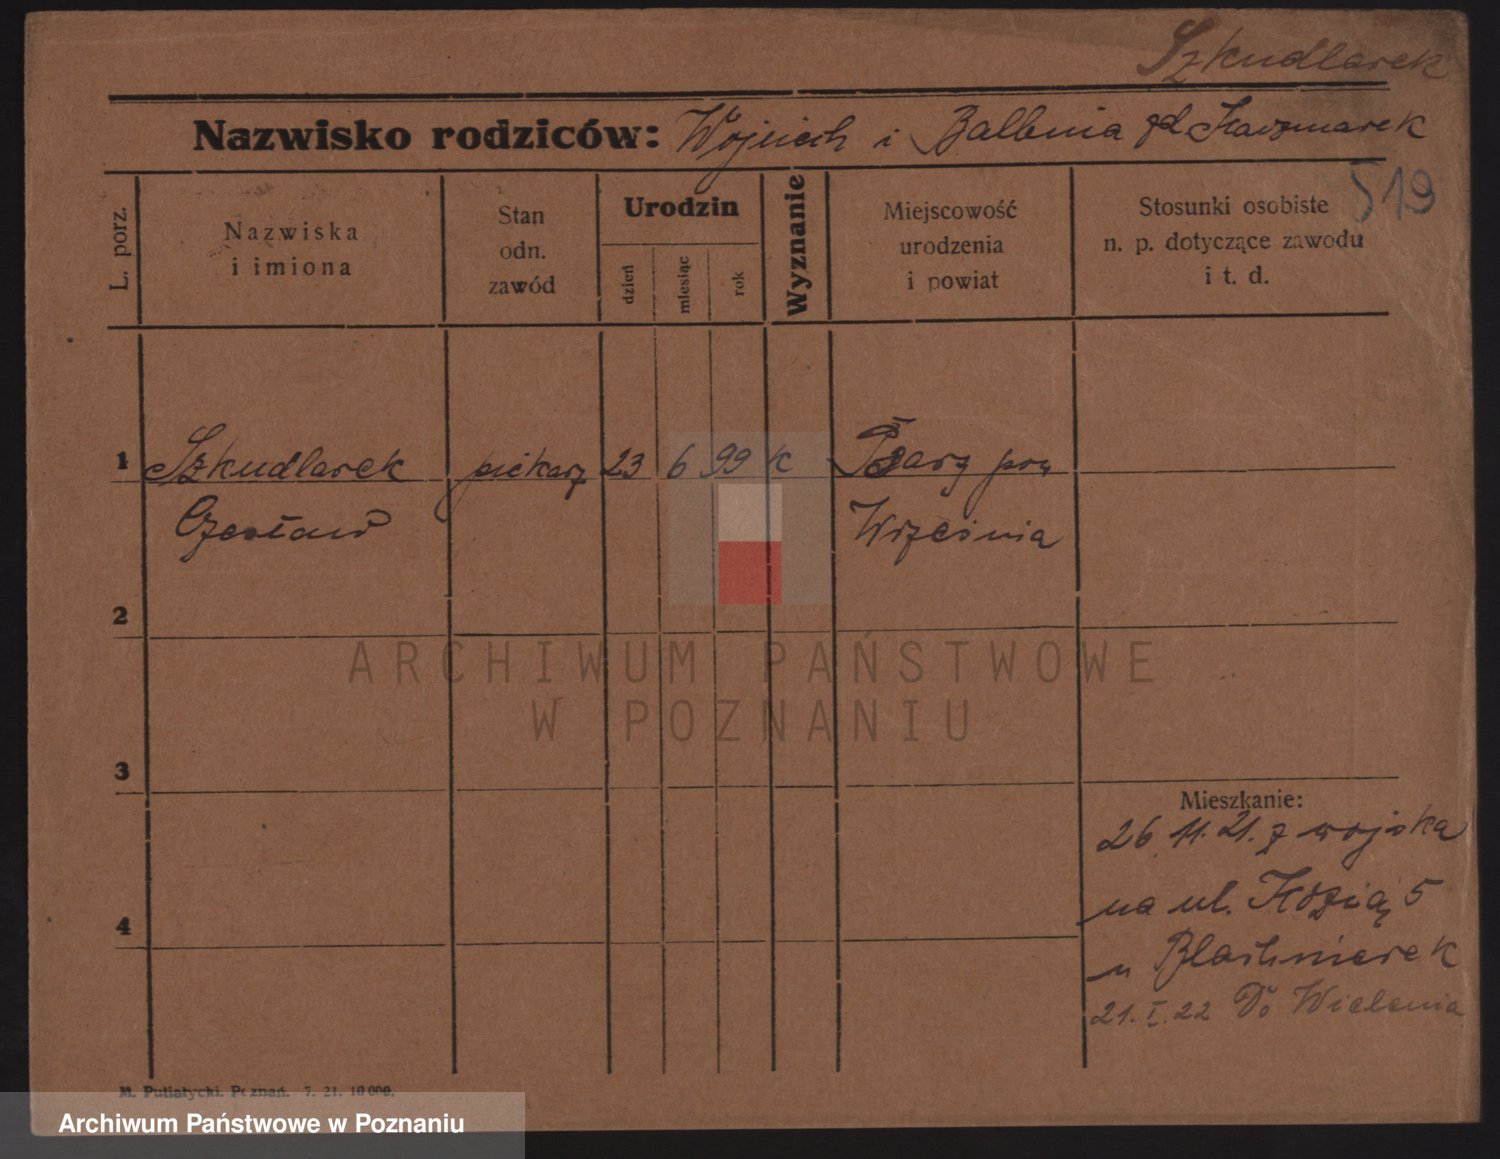 Szkudlarek
Nazwisko rodziców: Wojciech i Balbina zd Kaczmarek
519
L. porz.
Nazwiska
i imiona
Stan
odn.
zawód
Urodzin
dzień
miesiąc
rok
Wyznanie
Miejscowość
urodzenia
i powiat
Stosunki osobiste
n. p. dotyczące zawodu
i t. d.
1 Szkudlarek piekarz 23 6 99 k pow
Czesław Września
2
ARCHIWUM PAŃSTWOWE
W POZNANIU
3
Mieszkanie:
26 11. 21. z wojska
na ul. Kozią 5
4
u
21. I. 22 Do Wielenia
M. Putiatycki. Poznań. 7. 21. 10 000.
Archiwum Państwowe w Poznaniu